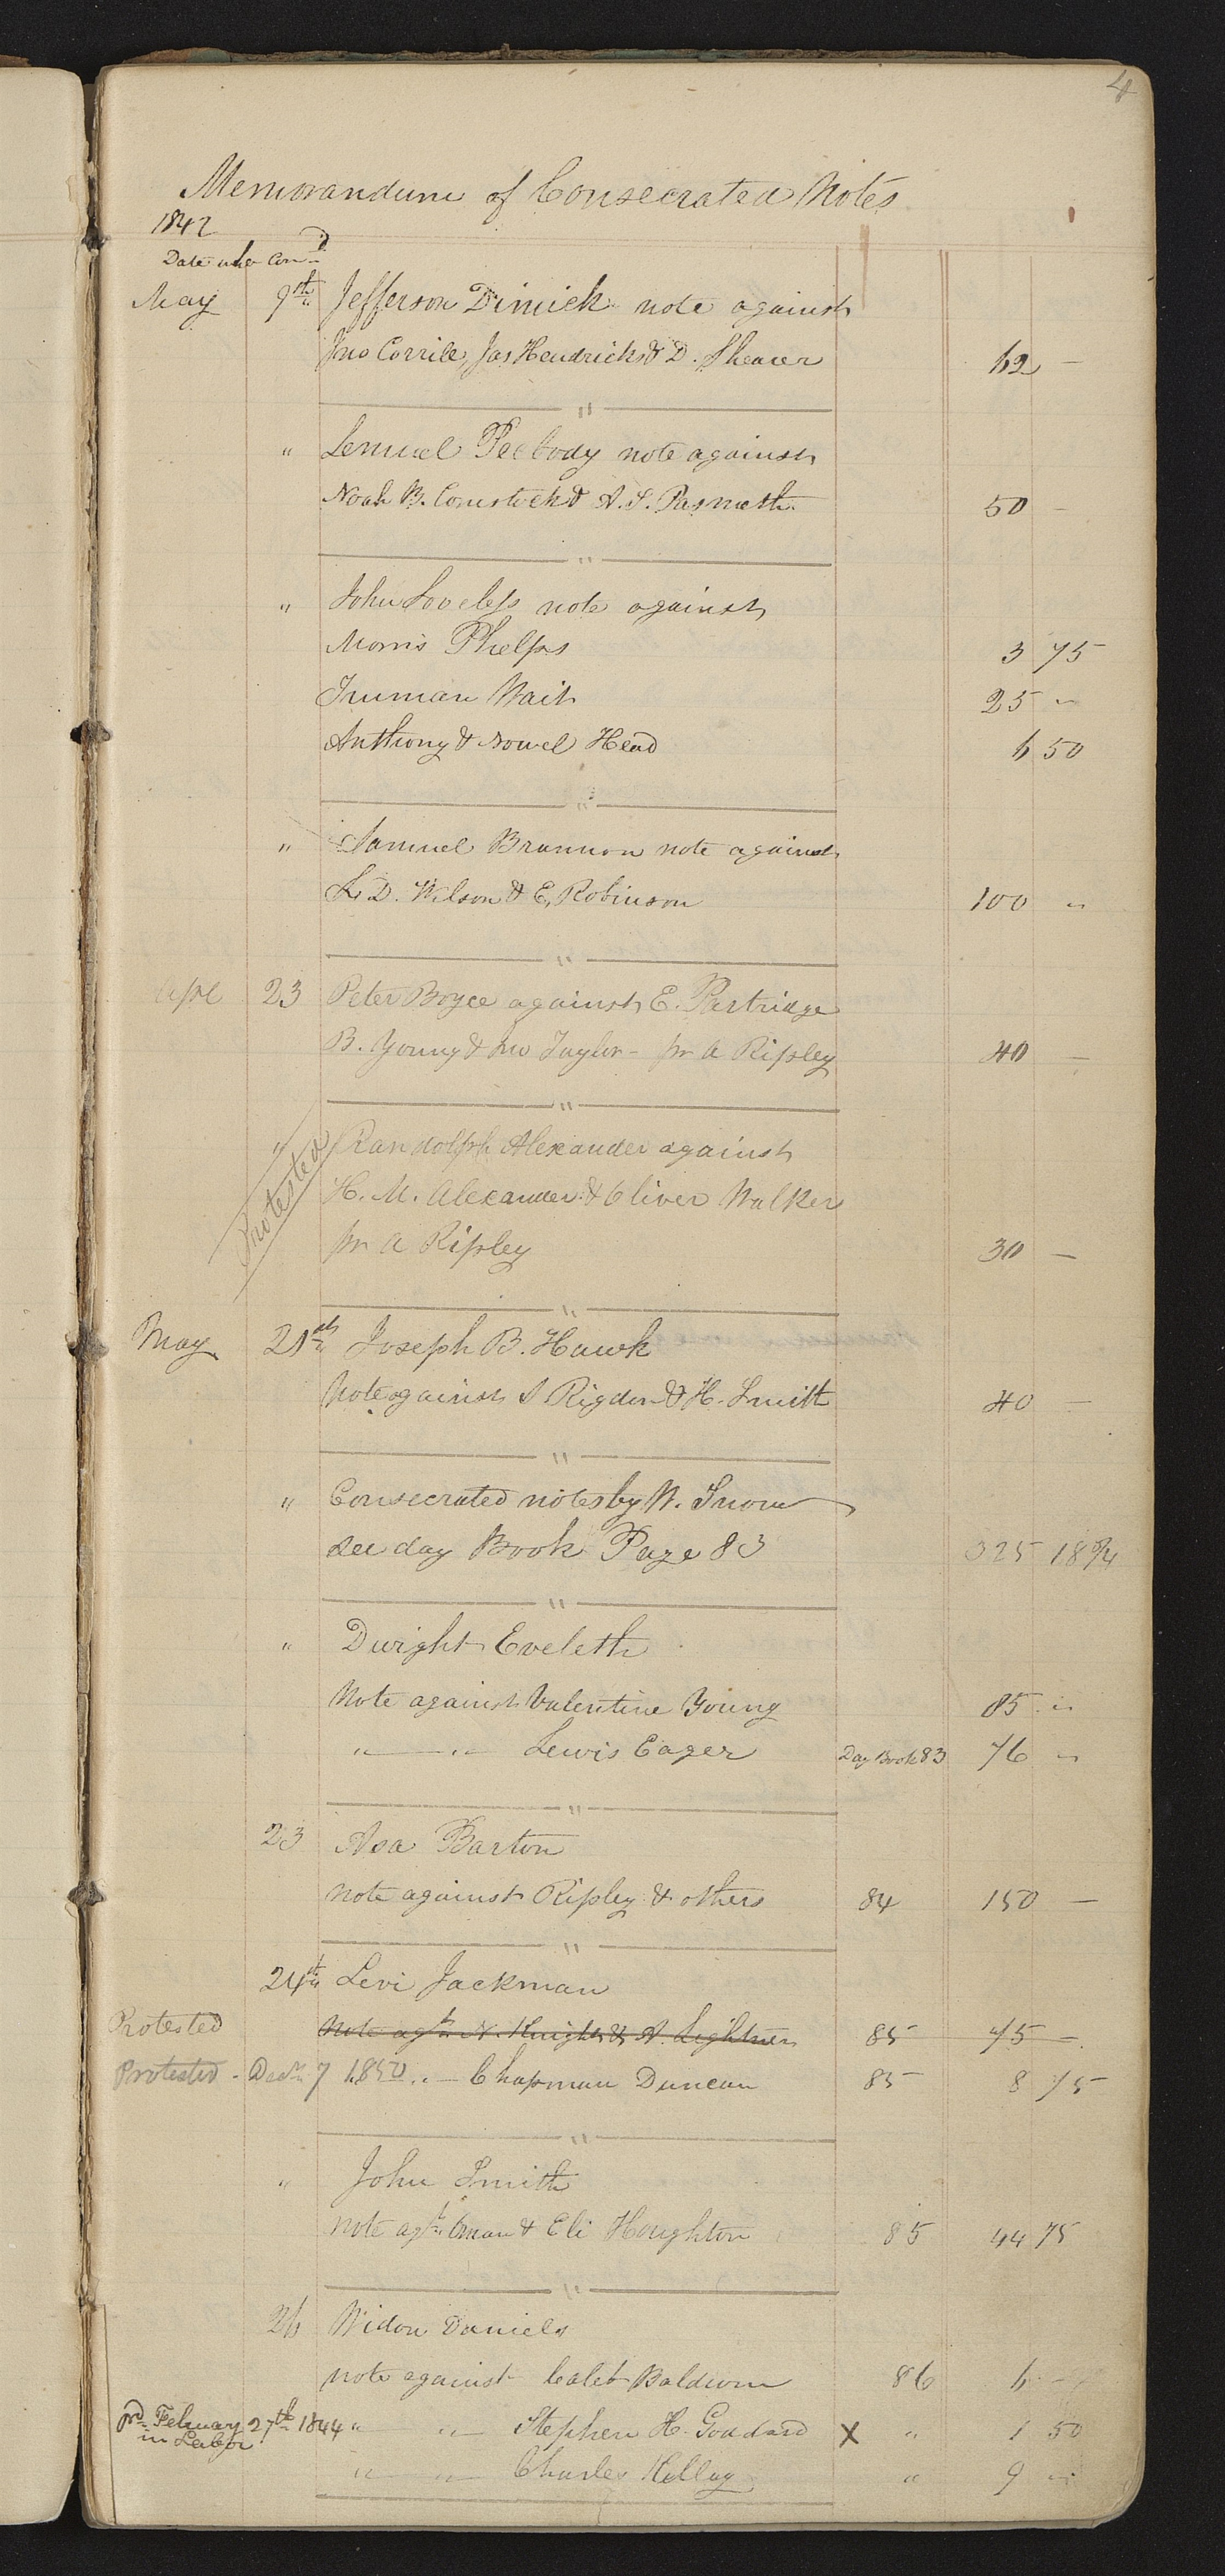 4
Memorandum of Consecrated Notes
1842
Date when Con.d
May 9th Jefferson Dimick note against
Jno Corrill, Jas Hendricks & D. Shearer 62 —
" Lemuel Peebody note against
Noah B. Comstock & A. S. 50 —
" John Loveless note against
Morris Phelps 3 75
Truman Wait 25 "
Anthony & Head 6 50
" Samuel Brannon note against
L. D. Wilson & E. Robinson 100 "
Apl 23 Peter Boyce against E. Partridge
B. Young & Jno Taylor - pr A Ripley 40 —
Protested " Randolph Alexander against
H. M. Alexander & Oliver Walker
pr A Ripley 30 —
May 21st Joseph B. Hawk
Note against S Rigdon & H. Smith 40 —
" Consecrated notes by W. Snow
see day Book Page 83 325 18 3/4
" Dwight Eveleth
Note against Valentine Young 85 "
" — " — Lewis Eager Day Book 83 76 "
23 Asa Barton
note against Ripley & others 84 150 —
24th Levi Jackman
Protested Note agst N. Knight & A. Lightner 85 75 —
Protested - Decr 7 1850 " — Chapman Duncan 85 8 75
" John Smith
note agst Oman & Eli Houghton 85 44 75
26 Widow Daniels
note against Caleb Baldwin 86 6 —
pd February 27th 1844 " " — Stephen H. Goddard X " 1 50
in Labor
" — " — Charles Kellog " 9 "